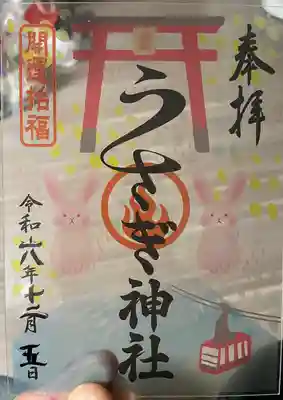 奉拝
うさぎ神社
開運招福
令和六年十二月五日